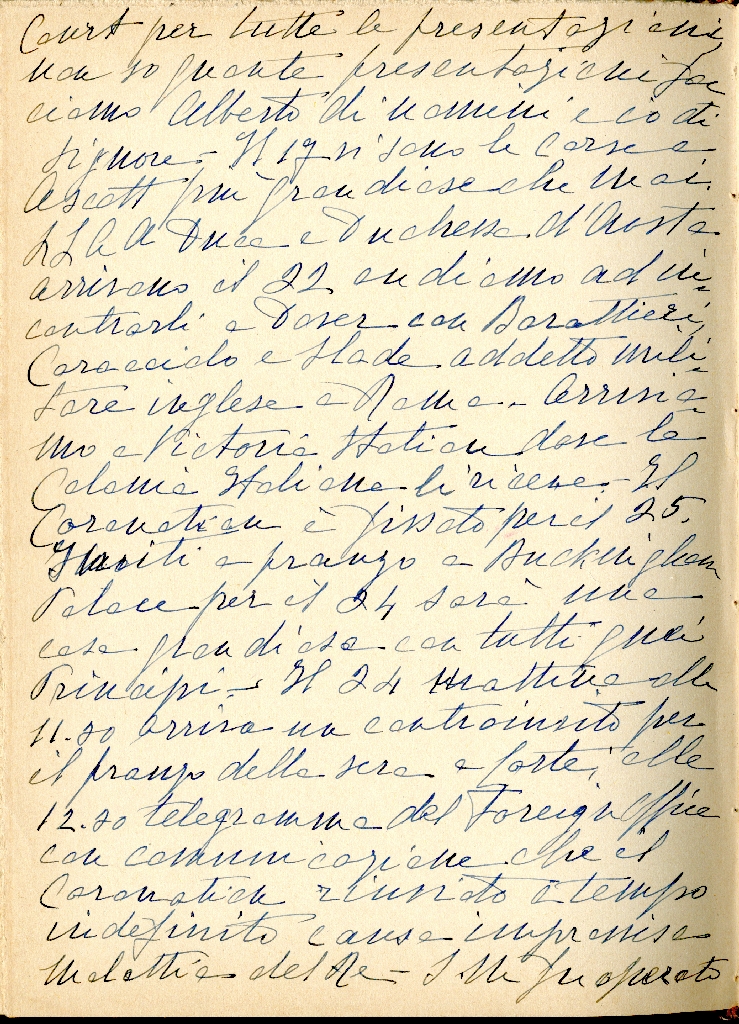 Court per tutte le presentazioni,
non so quante presentazioni fac
ciamo Alberto di uomini e io di
signore - Il 17 vi sono le corse a
Ascott più grandiose che mai.
LL AA A Duca e Duchessa d'Aosta
arrivano il 22 andiamo ad in=
contrarli a Dover con Barattieri,
Caracciolo e Slade addetto mili=
tare inglese a Roma - Arrivia=
mo a Victoria Station dove la
Colonia Italiana li riceve - Il
Coronation è fissato per il 25.
Inviti a pranzo a Buckingham
Palace per il 24 sarà una
cosa grandiosa con tutti quei
Principi - Il 24 mattina alle
11.30 arriva un controinvito per
il pranzo della sera a Corte, alle
12.30 telegramma del Foreign Office
con comunicazione che il
Coronation rinviato a tempo
indefinito causa improvvisa
malattia del Re - S M fu operato